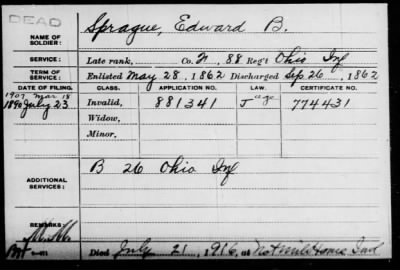 DEAD
NAME OF SOLDIER: Sprague, Edward B.
SERVICE: Late rank, Co. 88 Reg't Ohio Inf
TERM OF SERVICE: Enlisted May 28, 1862 Discharged Sep 26, 1862
DATE OF FILING. CLASS. APPLICATION NO. LAW. CERTIFICATE NO.
1907 Mar 18
1890 July 23 Invalid, 881341 774431
Widow,
Minor.
ADDITIONAL SERVICES: B 26 Ohio Inf
REMARKS:
Died July 21, 1916, at Nat Mil Home Ind